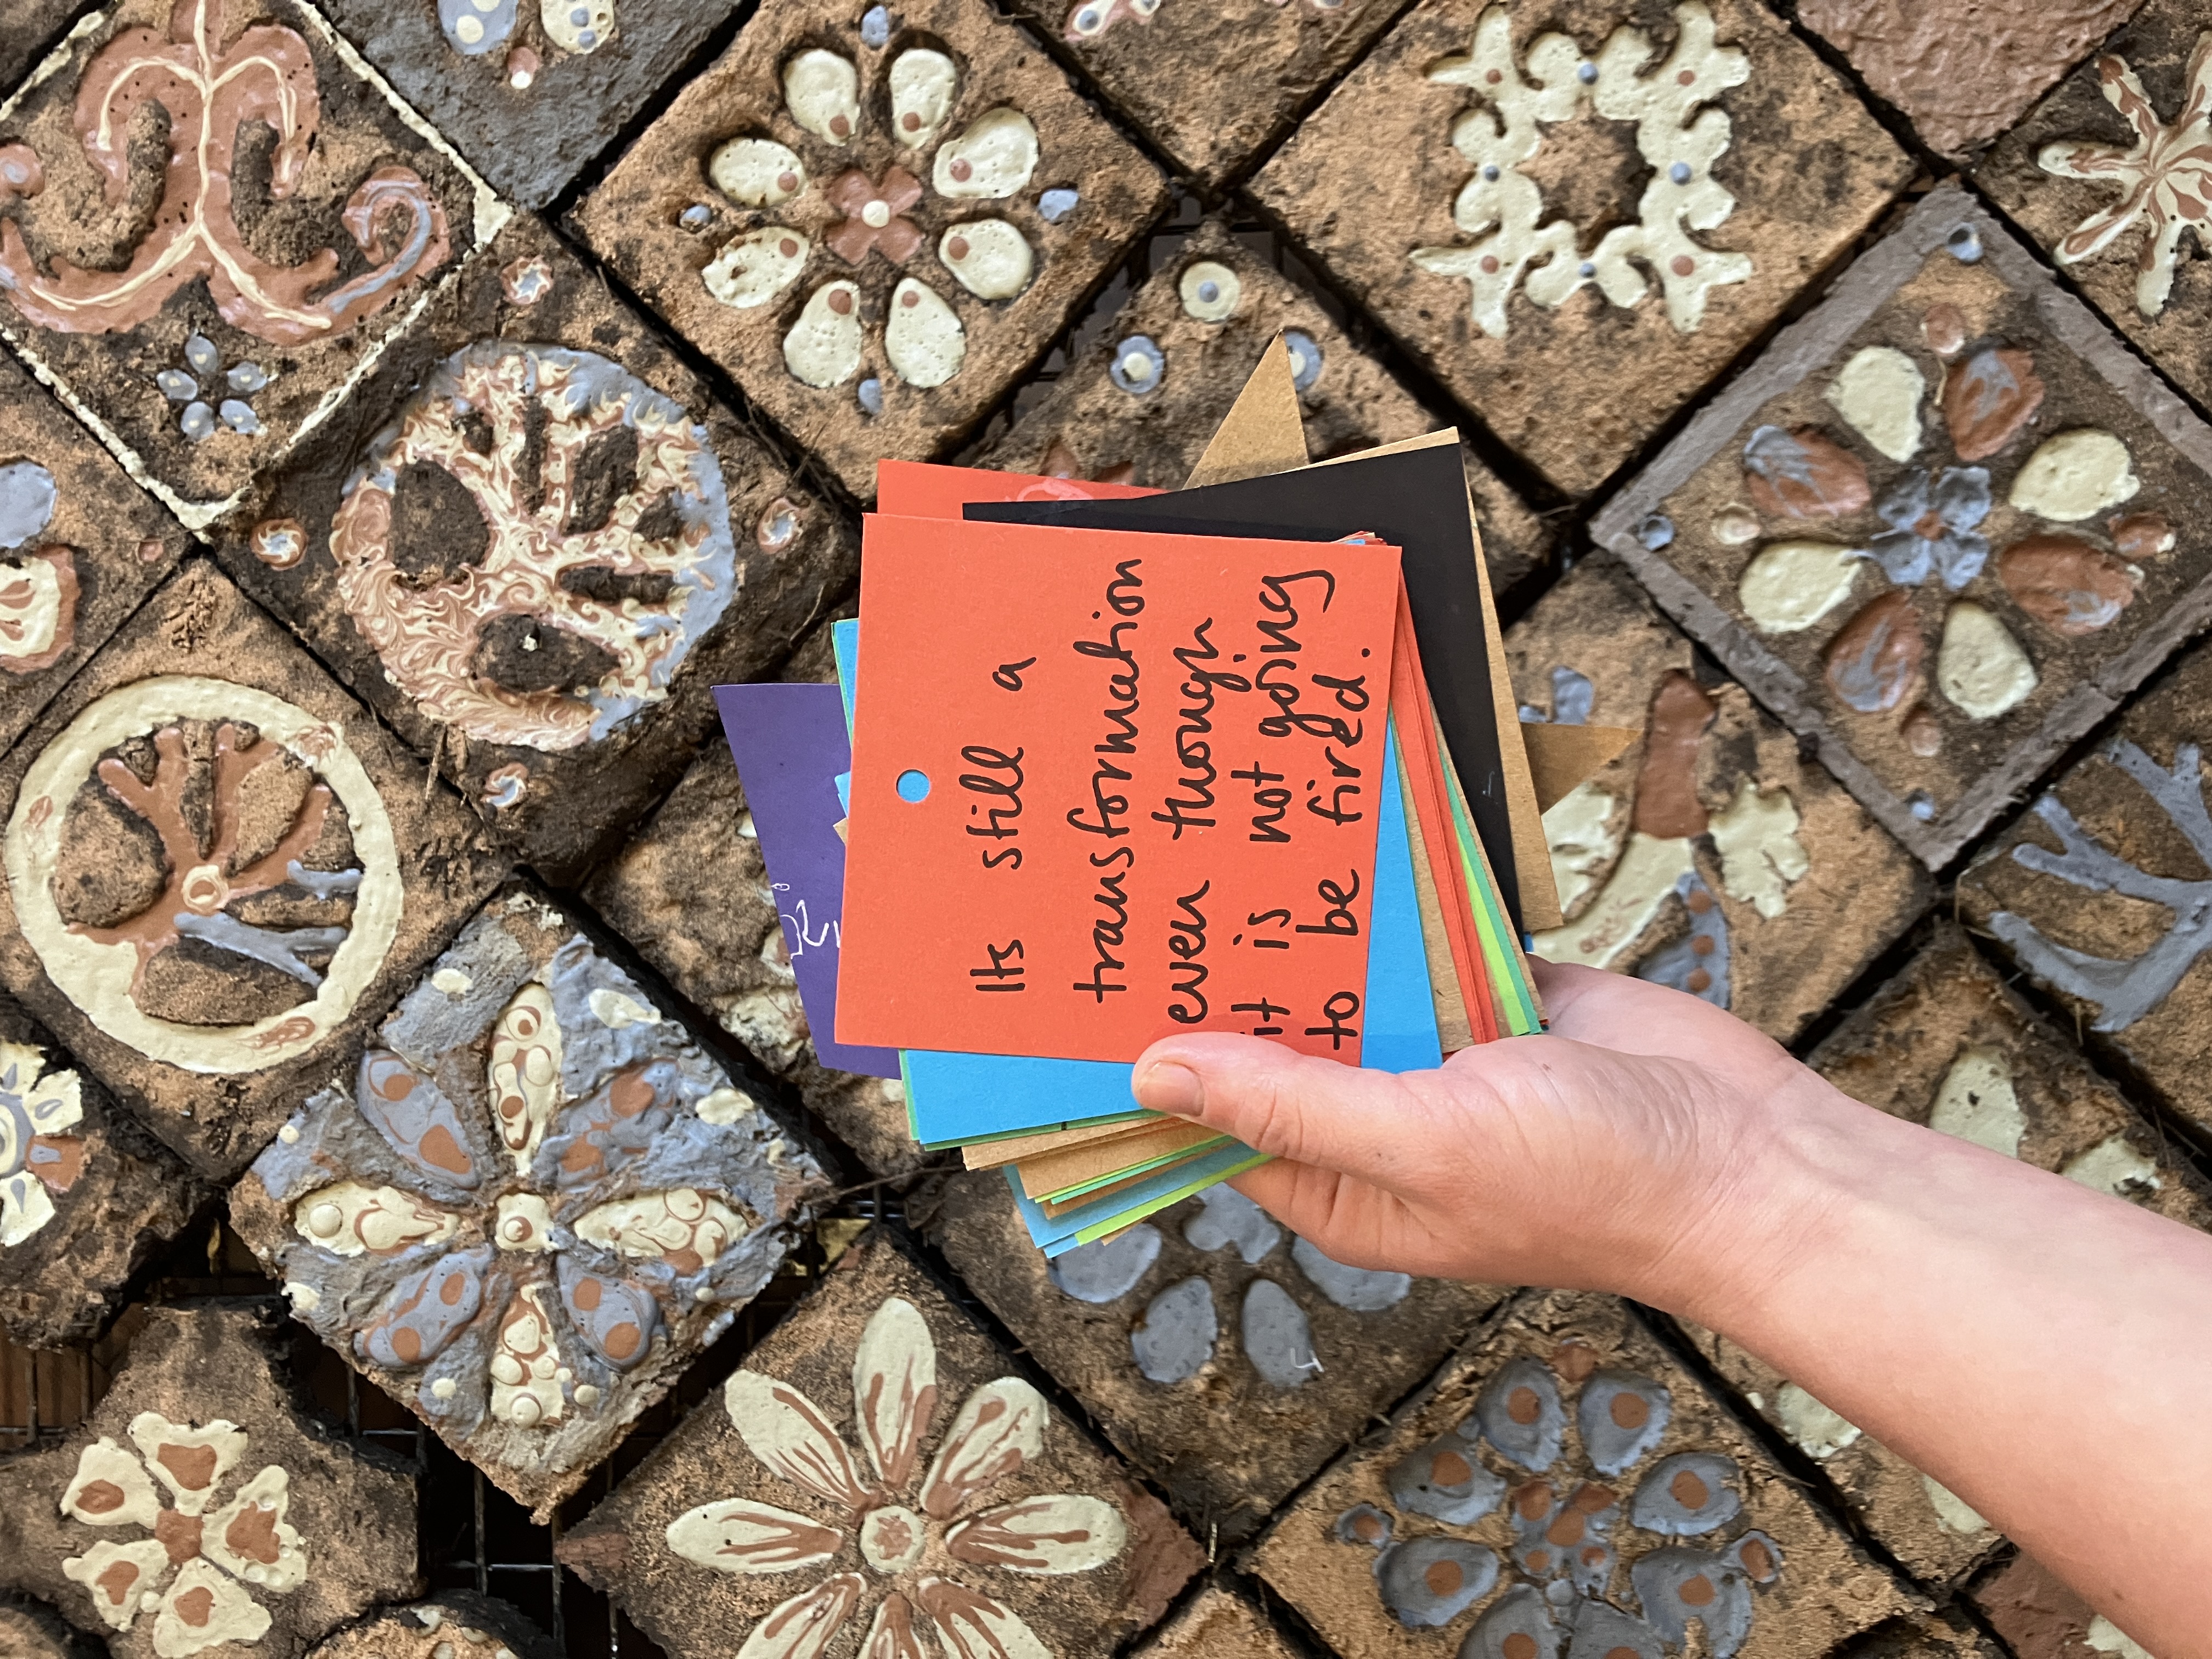 Its still a
transformation
even though
it is not going
to be fired.